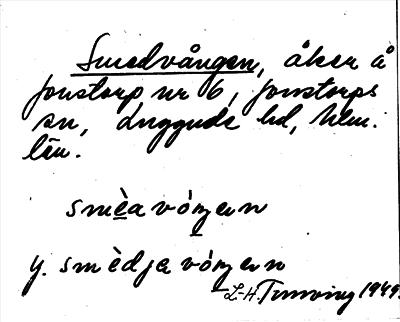 Smedvången, åker å
Jonstorp nr 6, Jonstorps
sn, Luggude hd, Mlm.
län.
smèa vóŋen
y. smèdja vóŋen
L-H. 1949.